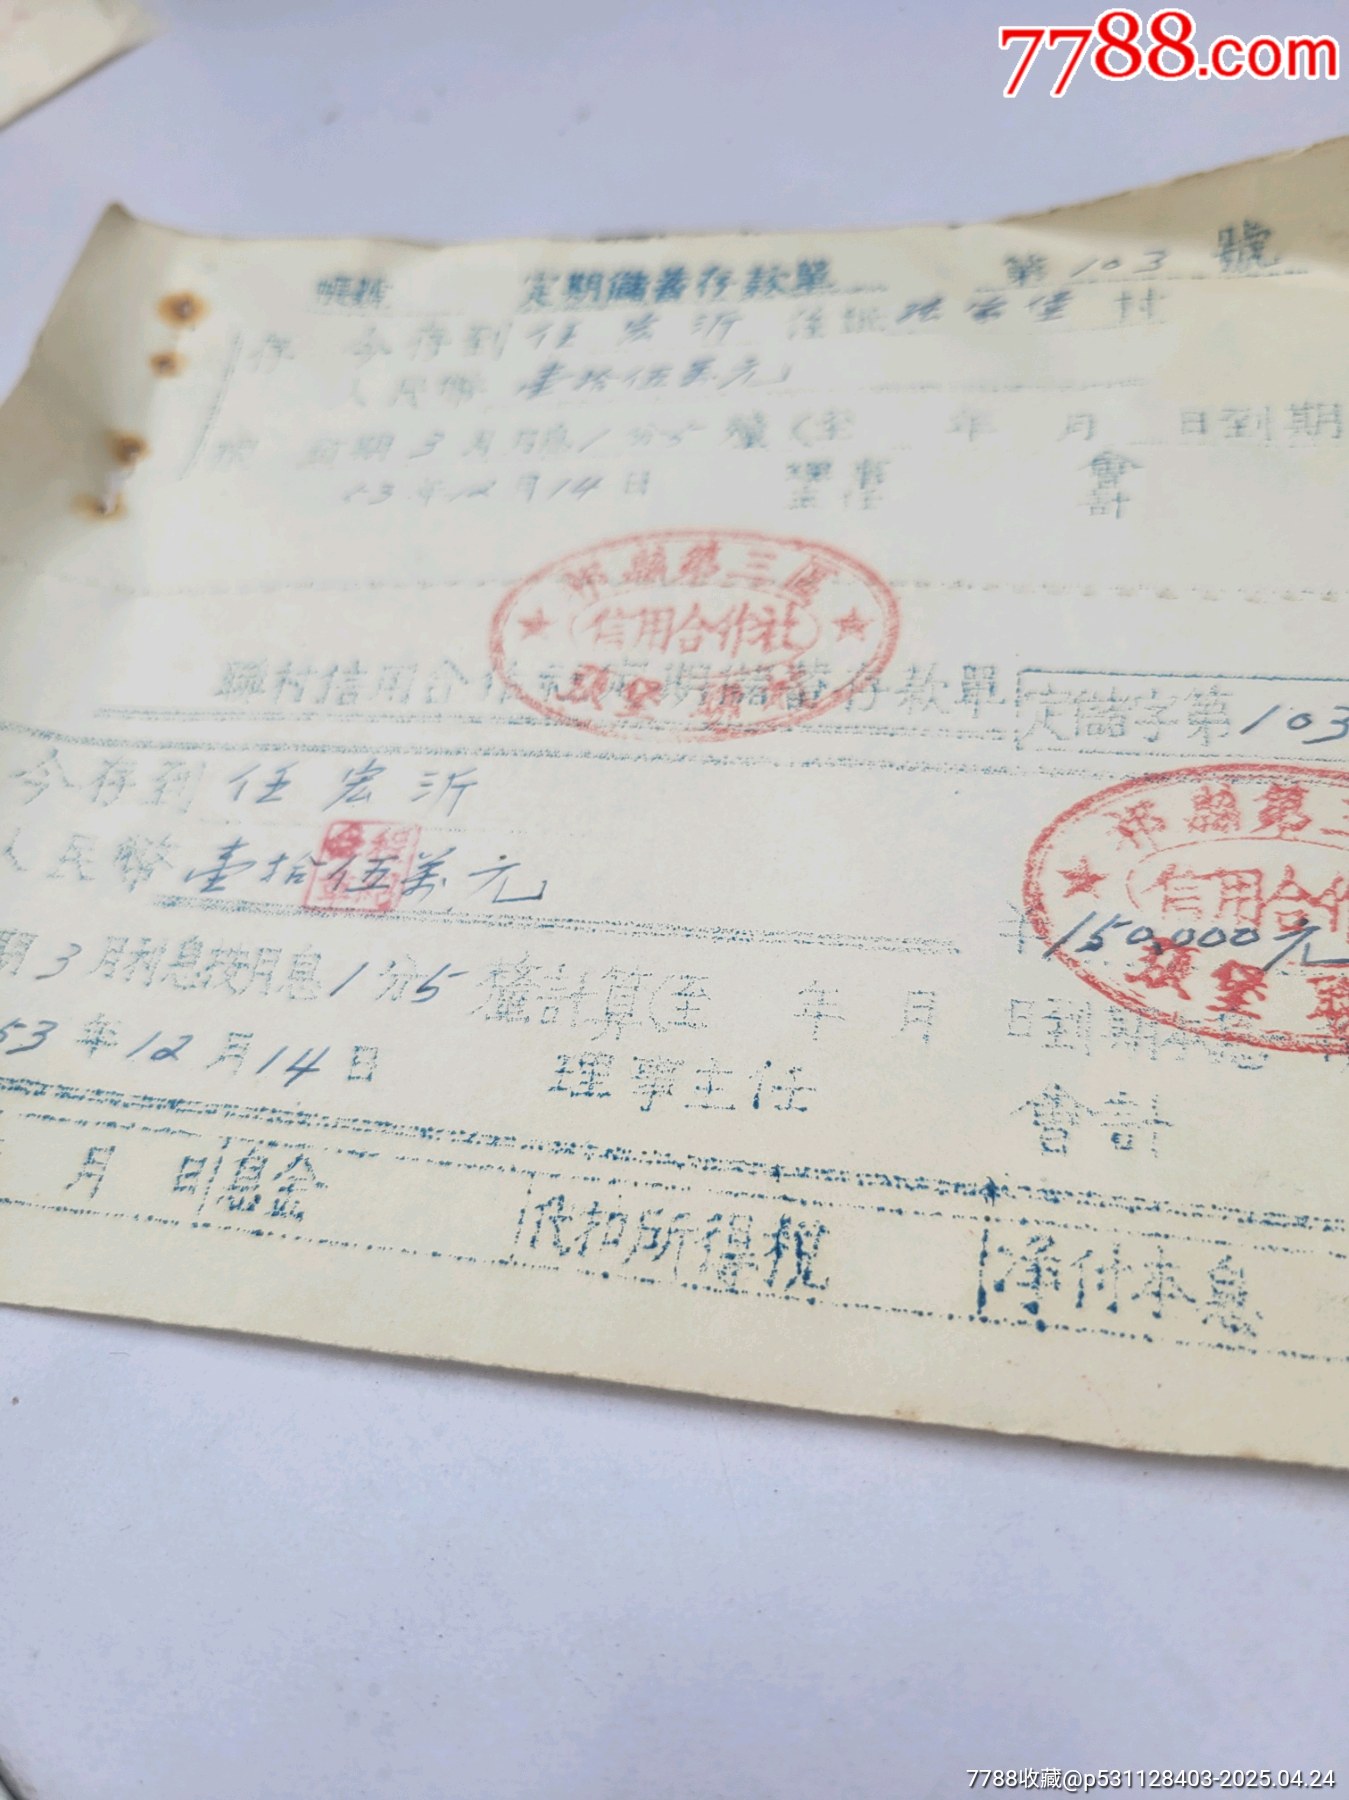 7788.com
定期儲蓄存款單 第103號
今存到任宏沂 村
人民幣 壹拾伍萬元
期3月月息1分5釐(至 年 月 日到期
53年12月14日 理事主任 會計
縣第三區
信用合作社
聯村信用合作社定期儲蓄存款單 定儲字第103
今存到 任宏沂
人民幣 壹拾伍萬元
150,000元
縣第三
信用合作
期3月利息按月息1分5釐計算(至 年 月 日到期本息
53年12月14日 理事主任 會計
月 日 息金 代扣所得税 净付本息
7788收藏@p531128403-2025.04.24